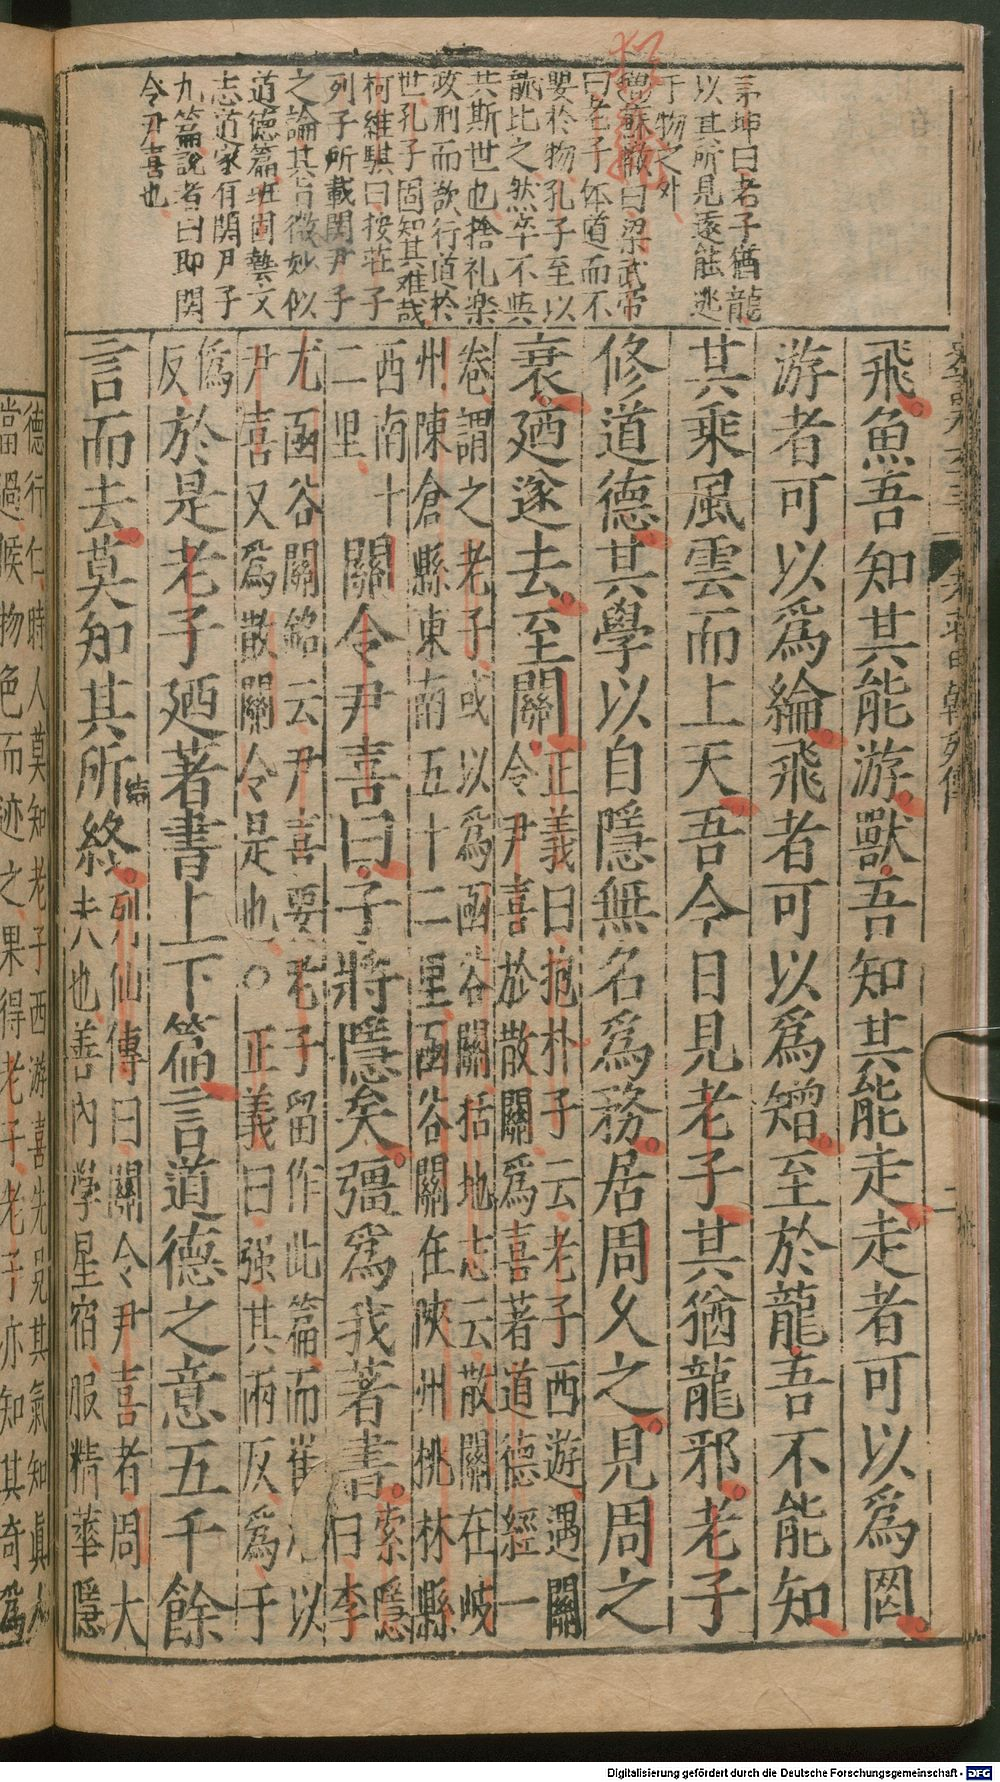 茅坤曰老子猶龍
以其所見遂能逃
于物之外
增蘇轍曰梁武帝
曰老子体道而不
嬰於物孔子至以
龍比之然卒不与
共斯世也捨礼楽
政刑而欲行道於
世孔子固知其难哉
柯維騏曰按莊子
列子所載関尹子
之論其旨微妙似
道徳篇班固藝文
志道家有関尹子
九篇說者曰即関
令尹喜也
飛魚吾知其能游獸吾知其能走走者可以爲罔
游者可以爲綸飛者可以爲矰至於龍吾不能知
其乘風雲而上天吾今日見老子其猶龍邪老子
修道德其學以自隱無名爲務居周乆之見周之
衰廼遂去至關
正義曰抱朴子云老子西遊遇關
令尹喜於散關爲喜著道德經一
卷謂之老子或以爲函谷關括地志云散關在岐
州陳倉縣東南五十二里函谷關在陝州桃林縣
西南十
二里
關令尹喜曰子將隱矣彊爲我著書
索隱
曰李
尤函谷關銘云尹喜要老子留作此篇而崔以
尹喜又爲散關令是也○正義曰强其兩反爲于
僞
反
於是老子廼著書上下篇言道德之意五千餘
言而去莫知其所終
列仙傳曰關令尹喜者周大
夫也善內學星宿服精華隱
德行仁時人莫知老子西游喜先見其氣知眞人
當過候物色而迹之果得老子老子亦知其奇爲
老莊申韓列傳
二
Digitalisierung gefördert durch die Deutsche Forschungsgemeinschaft - DFG